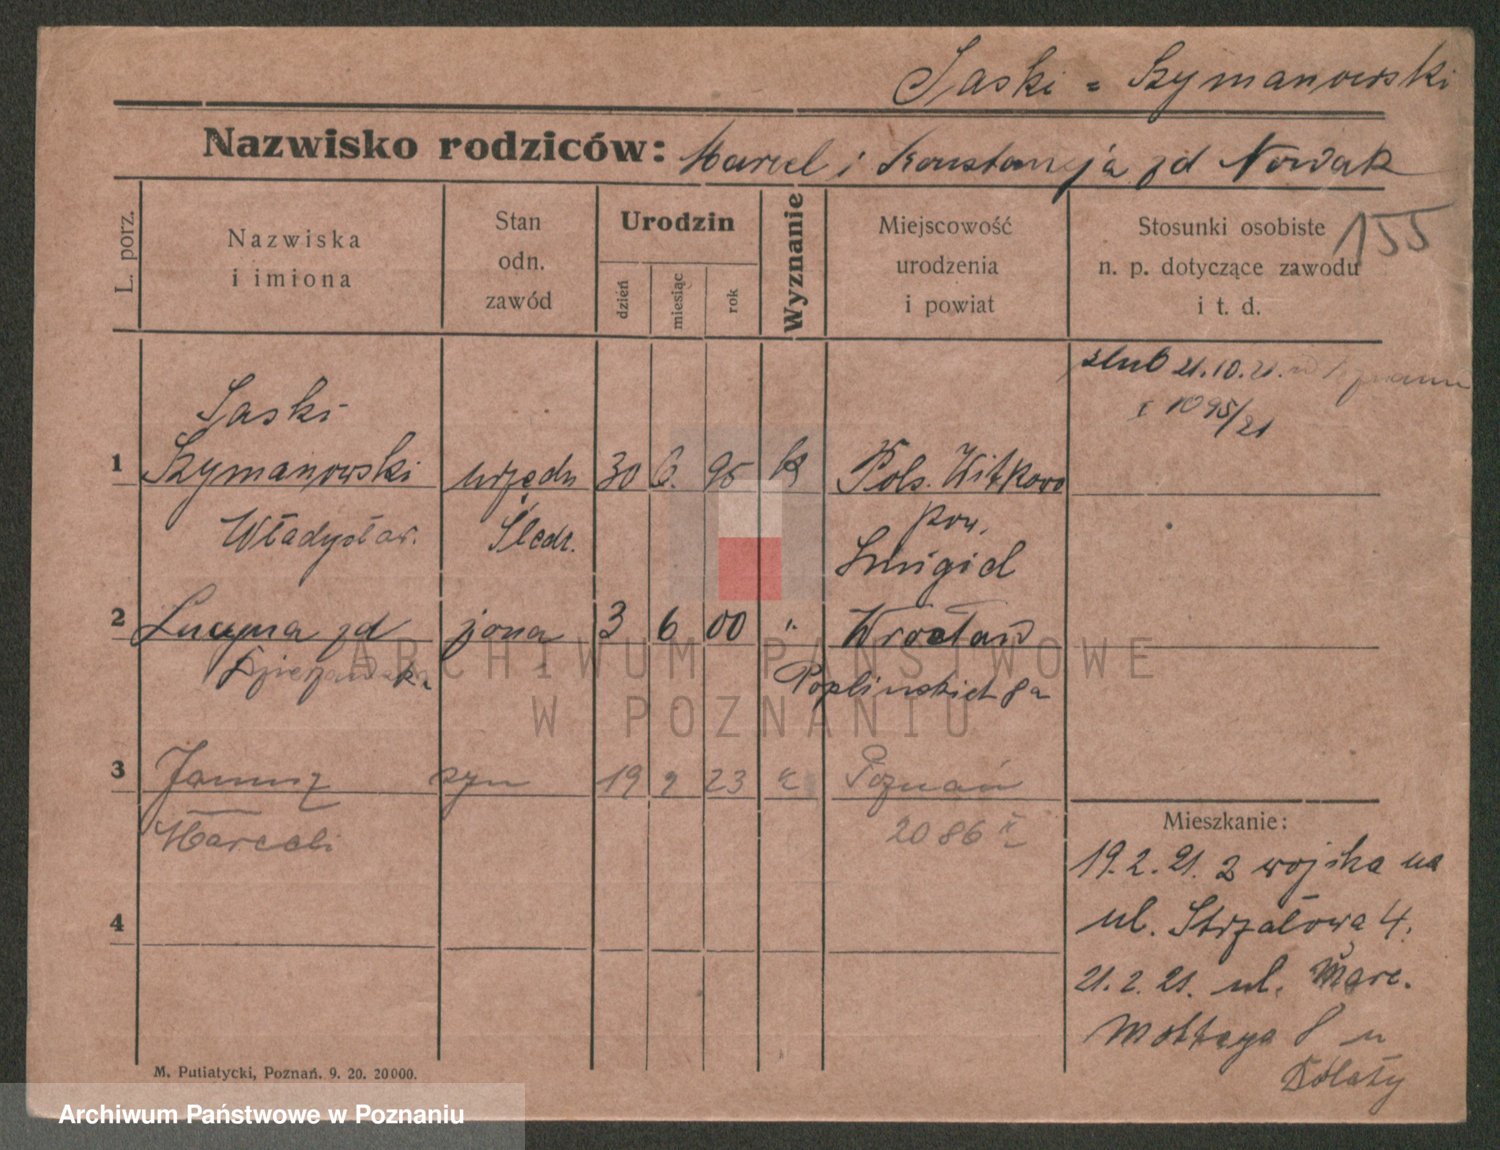 Saski = Szymanowski
Nazwisko rodziców: Marcel i Konstancja zd Nowak
155
L. porz.
Nazwiska
i imiona
Stan
odn.
zawód
Urodzin
dzień
miesiąc
rok
Wyznanie
Miejscowość
urodzenia
i powiat
Stosunki osobiste
n. p. dotyczące zawodu
i t. d.
ślub 21.10.21. w Poznaniu
1095/21
Saski
1 Szymanowski urzędn 30 6. 95 k Pols. Witkowo
Władysław. Śledz. pow.
Śmigiel
2 Lucyna zd żona 3 6 00 " Wrocław
Dzierzawska
Poplinskich 8a
3 Janusz syn 19 2 23 k Poznań
Marceli 2086
4
Mieszkanie:
19.2.21. z wojska na
ul. Strzałowa 4.
21.2.21. ul. Marc.
Mottego 8 u
M. Putiatycki, Poznań. 9. 20. 20000.
ARCHIWUM PAŃSTWOWE
W POZNANIU
Archiwum Państwowe w Poznaniu